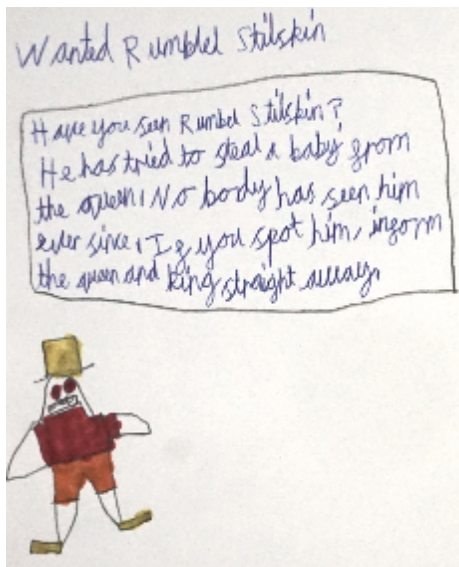 Wanted Rumbdel Stilskin
Have you seen Rumbel Stilskin?
He has tried to steal a baby from
the queen. No body has seen him
ever since. If you spot him, inform
the queen and king straight away.